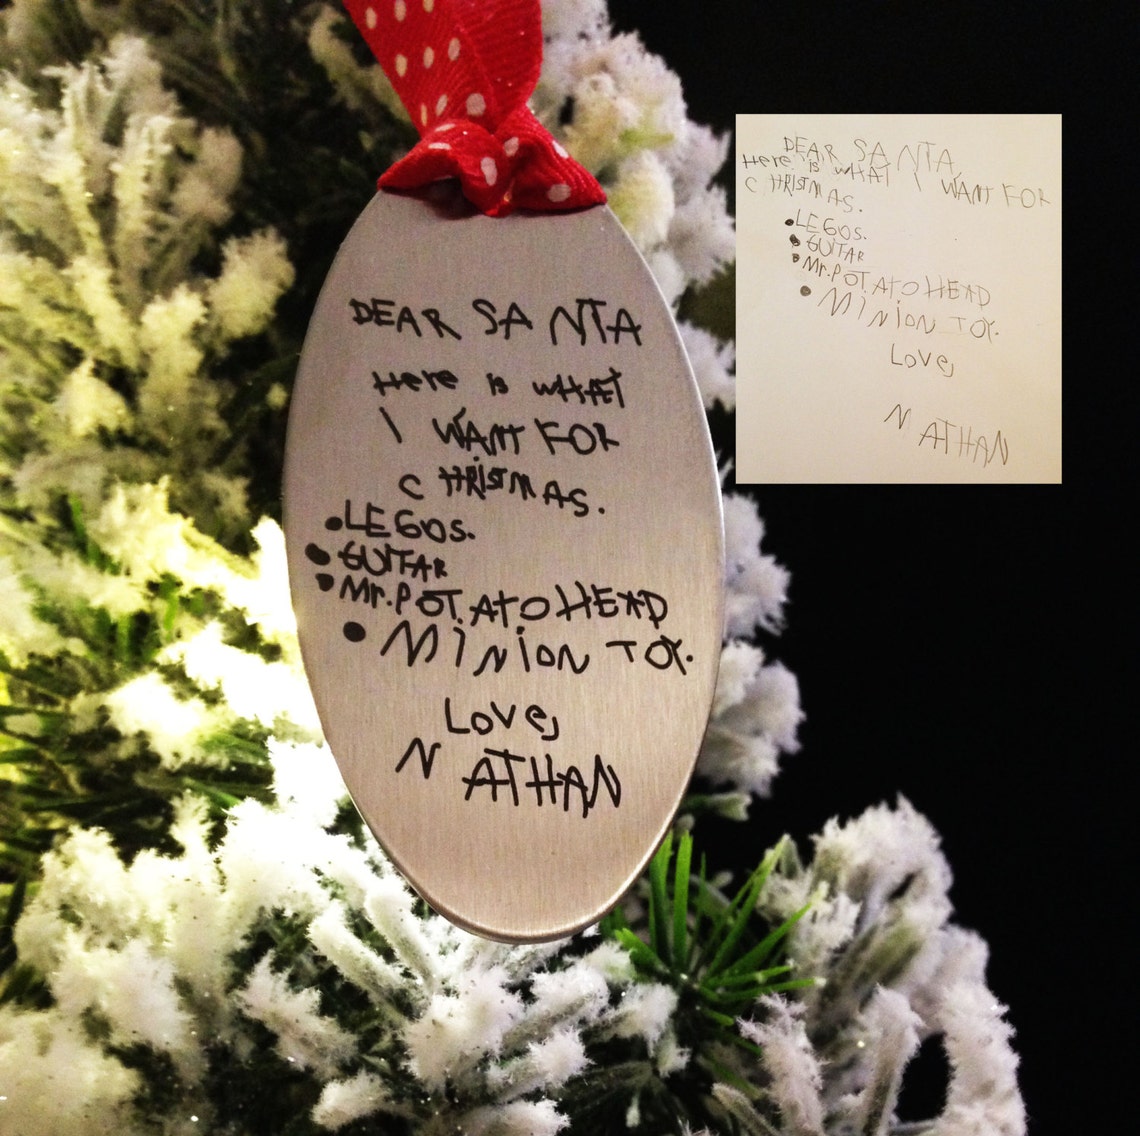 DEAR SANTA
Here is wHAT
I WANT FOR
CHRISTMAS.
•LEGOS.
•GUITAR
•Mr.POT.AtOHEAD
•MINION TOY.
Love,
NATHAN
DEAR SANTA,
Here is wHAT I WANT FOR
CHRISTMAS.
•LEGOS.
•GUITAR
•Mr.POT.AtOHEAD
•MINION TOY.
Love,
NATHAN